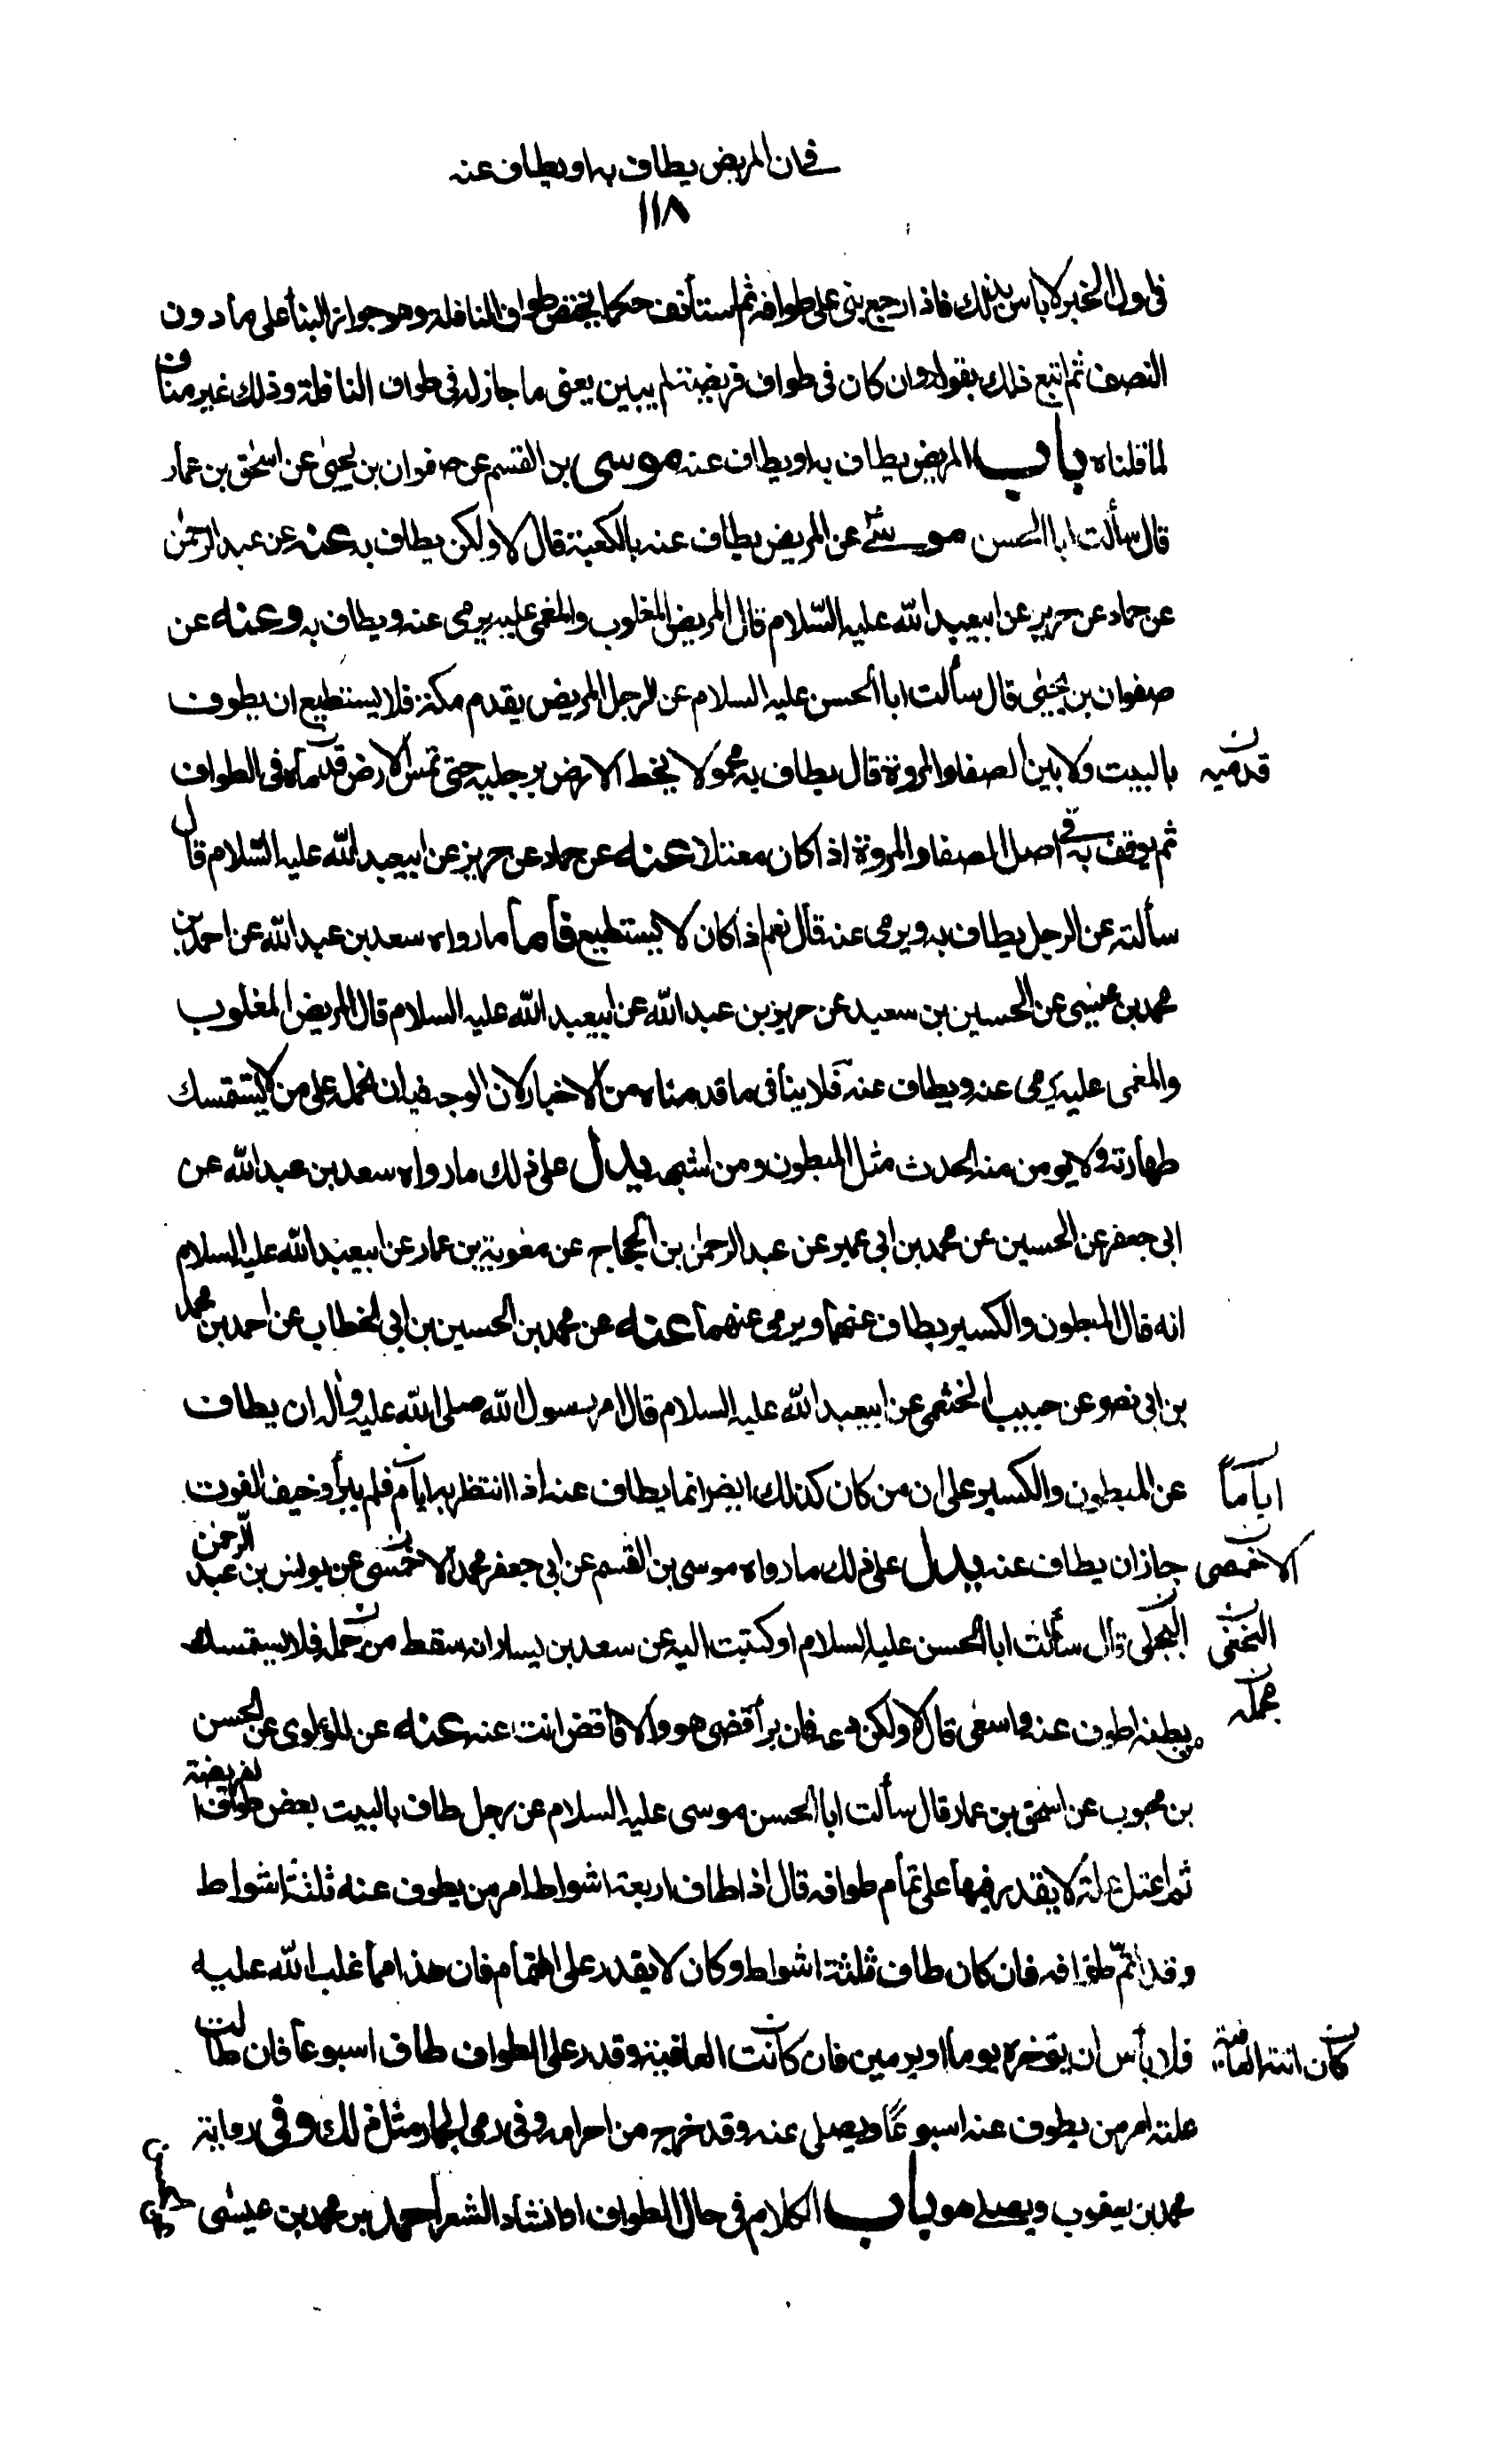 في ان المريض يطاف به او يطاف عنه
١١٨
في اول الخبر لا باس بذلك فاذا رجع بنى على طوافه ثم استأنف حكما يختص طواف النافلة وهو جواز البنأ على ما دون
النصف ثم اتبع ذلك بقوله وان كان في طواف فريضة لم يبين يعنى ما جاز له في طواف النافلة وذلك غير مناف
لما قلناه باب المريض يطاف به او يطاف عنه موسى بن القسم عن صفوان بن يحيى عن اسحق بن عمار
قال سألت ابا الحسن موسى ع عن المريض يطاف عنه بالكعبة قال لا ولكن يطاف به عنه عن عبد الرحمن
عن حماد عن حريز عن ابيعبد الله عليه السّلام قال المريض المغلوب والمغمى عليه يرمى عنه ويطاف به وعنه عن
صفوان بن يحيى قال سألت ابا الحسن عليه السلام عن الرجل المريض يقدم مكة فلا يستطيع ان يطوف
بالبيت ولا بين الصفا والمروة قال يطاف به محمولا يخط الارض برجليه حتى تمس الارض قدماه في الطواف
قدميه
ثم يوقف به في اصل الصفا والمروة اذا كان معتلا عنه عن حماد عن حريز عن ابيعبد الله عليه السّلام قال
سألته عن الرجل يطاف به ويرمى عنه قال نعم اذا كان لا يستطيع فأما ما رواه سعد بن عبد الله عن احمد بن
محمد بن عيسى عن الحسين بن سعيد عن حريز بن عبد الله عن ابيعبد الله عليه السلام قال المريض المغلوب
والمغمى عليه يرمى عنه ويطاف عنه فلا ينافى ما قدمناه من الاخبار لان الوجه فيه ان نحمله على من لا يستمسك
طهارته ولا يومن منه الحدث مثل المبطون ومن اشبهه يدل على ذلك ما رواه سعد بن عبد الله عن
ابى جعفر عن الحسين عن محمد بن ابى عمير عن عبد الرحمن بن الحجاج عن معوية بن عمار عن ابيعبد الله عليه السلام
انه قال المبطون والكسير يطاف عنهما ويرمى عنهما عنه عن محمد بن الحسين بن ابى الخطاب عن احمد بن محمد
بن ابى نصر عن حبيب الخثعمى عن ابيعبد الله عليه السلام قال امر رسول الله صلى الله عليه وآله ان يطاف
عن المبطون والكسير على ان من كان كذلك ايضا انما يطاف عنه اذا انتظر به ايام فلم يبرأ وخيف الفوت
اياماً
جاز ان يطاف عنه يدل على ذلك ما رواه موسى بن القسم عن ابى جعفر محمد الاخمسى عن يونس بن عبد الرحمن
الاخمصى
البجلى قال سألت ابا الحسن عليه السلام او كتبت اليه عن سعد بن يسار انه سقط من جمله فلا يستمسك
النخعى
محمله
بطنه اطوف عنه واسعى قال لا ولكن دعه فان برأ قضى هو والا فاقض انت عنه عنه عن اللؤلوى عن الحسن
بن محبوب عن اسحق بن عمار قال سألت ابا الحسن موسى عليه السلام عن رجل طاف بالبيت بعض طوافه الفريضة
ثم اعتل علة لا يقدر فيها على تمام طوافه قال اذا طاف اربعة اشواط امر من يطوف عنه ثلثة اشواط
وقد تمّ طوافه فان كان طاف ثلثة اشواط وكان لا يقدر على التمام فان هذا مما غلب الله عليه
فلا بأس ان يؤخره يوما او يومين فان كانت العافية وقدر على الطواف طاف اسبوعاً فان طالت
كان انته العافية
علته امر من يطوف عنه اسبوعًا ويصلى عنه وقد خرج من احرامه وفى رمى الجمار مثل ذلك وفى رواية
محمد بن يعقوب ويصلى هو باب الكلام في حال الطواف او انشاد الشعر احمد بن محمد بن عيسى